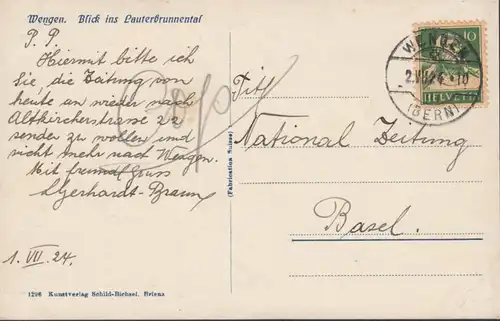 Wengen. Blick ins Lauterbrunnental
P. P.
Hiermit bitte ich
Sie, die Zeitung von
heute an wieder nach
Altkircherstrasse 22
senden zu wollen und
nicht mehr nach Wengen.
Mit freundl Gruss
Gerhardt-Braun
1. VII. 24.
1296 Kunstverlag Schild-Bichsel. Brienz
(Fabrication Suisse)
10
HELVETIA
WENGEN
2.VII.24.-10
(BERN)
Titl
National Zeitung
Basel.